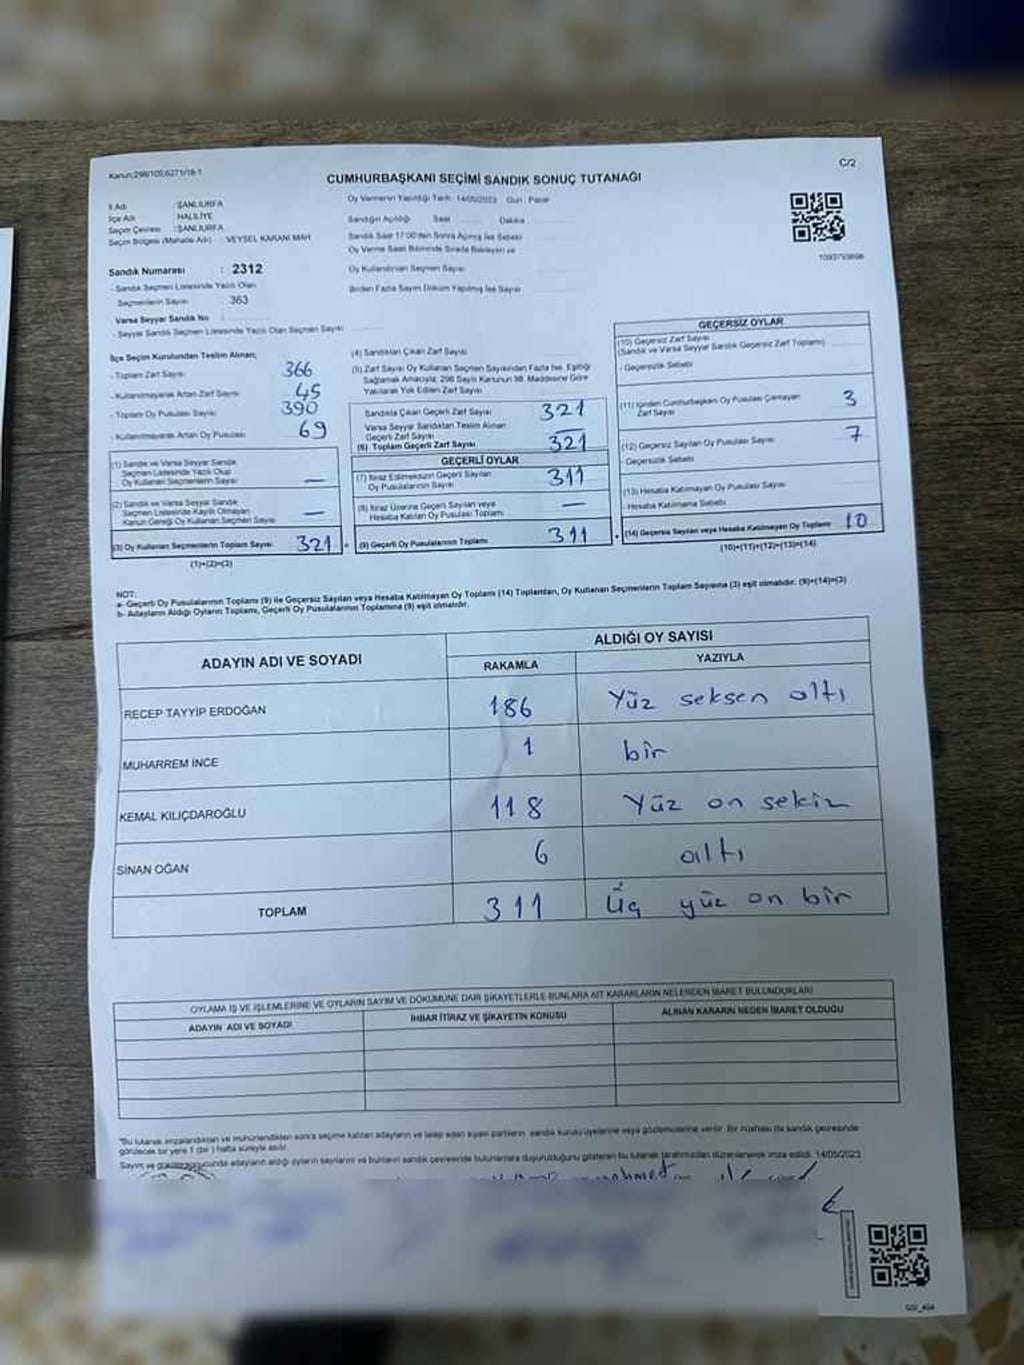 Kanun;298/105;6271/18-1
C/2
CUMHURBAŞKANI SEÇİMİ SANDIK SONUÇ TUTANAĞI
İl Adı : ŞANLIURFA
İlçe Adı : HALİLİYE
Seçim Çevresi : ŞANLIURFA
Seçim Bölgesi (Mahalle Adı) : VEYSEL KARANİ MAH
Sandık Numarası : 2312
- Sandık Seçmen Listesinde Yazılı Olan
Seçmenlerin Sayısı 363
Varsa Seyyar Sandık No :
- Seyyar Sandık Seçmen Listesinde Yazılı Olan Seçmen Sayısı
Oy Vermenin Yapıldığı Tarih: 14/05/2023 Gün: Pazar
Sandığın Açıldığı Saat Dakika
Sandık Saat 17:00'den Sonra Açılmış İse Sebebi
Oy Verme Saati Bitiminde Sırada Bekleyen ve
Oy Kullandırılan Seçmen Sayısı
Birden Fazla Sayım Döküm Yapılmış İse Sayısı
İlçe Seçim Kurulundan Teslim Alınan;
- Toplam Zarf Sayısı 366
- Kullanılmayarak Artan Zarf Sayısı 45
- Toplam Oy Pusulası Sayısı 390
- Kullanılmayarak Artan Oy Pusulası 69
(1) Sandık ve Varsa Seyyar Sandık
Seçmen Listesinde Yazılı Olup
Oy Kullanan Seçmenlerin Sayısı —
(2) Sandık ve Varsa Seyyar Sandık
Seçmen Listesinde Kayıtlı Olmayan
Kanun Gereği Oy Kullanan Seçmen Sayısı —
(3) Oy Kullanan Seçmenlerin Toplam Sayısı 321
(1)+(2)=(3)
(4) Sandıktan Çıkan Zarf Sayısı
(5) Zarf Sayısı Oy Kullanan Seçmen Sayısından Fazla İse, Eşitliği
Sağlamak Amacıyla, 298 Sayılı Kanunun 98. Maddesine Göre
Yakılarak Yok Edilen Zarf Sayısı
Sandıkta Çıkan Geçerli Zarf Sayısı 321
Varsa Seyyar Sandıktan Teslim Alınan
Geçerli Zarf Sayısı —
(6) Toplam Geçerli Zarf Sayısı 321
GEÇERLİ OYLAR
(7) İtiraz Edilmeksizin Geçerli Sayılan
Oy Pusulalarının Sayısı 311
(8) İtiraz Üzerine Geçerli Sayılan veya
Hesaba Katılan Oy Pusulası Toplamı —
(9) Geçerli Oy Pusulalarının Toplamı 311
GEÇERSİZ OYLAR
(10) Geçersiz Zarf Sayısı
(Sandık ve Varsa Seyyar Sandık Geçersiz Zarf Toplamı)
- Geçersizlik Sebebi
(11) İçinden Cumhurbaşkanı Oy Pusulası Çıkmayan
Zarf Sayısı 3
(12) Geçersiz Sayılan Oy Pusulası Sayısı 7
- Geçersizlik Sebebi
(13) Hesaba Katılmayan Oy Pusulası Sayısı
- Hesaba Katılmama Sebebi
(14) Geçersiz Sayılan veya Hesaba Katılmayan Oy Toplamı 10
(10)+(11)+(12)+(13)=(14)
NOT:
a- Geçerli Oy Pusulalarının Toplamı (9) ile Geçersiz Sayılan veya Hesaba Katılmayan Oy Toplamı (14) Toplamları, Oy Kullanan Seçmenlerin Toplam Sayısına (3) eşit olmalıdır. (9)+(14)=(3)
b- Adayların Aldığı Oyların Toplamı, Geçerli Oy Pusulalarının Toplamına (9) eşit olmalıdır.
ADAYIN ADI VE SOYADI
ALDIĞI OY SAYISI
RAKAMLA YAZIYLA
RECEP TAYYİP ERDOĞAN 186 Yüz seksen altı
MUHARREM İNCE 1 bir
KEMAL KILIÇDAROĞLU 118 Yüz on sekiz
SİNAN OĞAN 6 altı
TOPLAM 311 Üç yüz on bir
OYLAMA İŞ VE İŞLEMLERİNE VE OYLARIN SAYIM VE DÖKÜMÜNE DAİR ŞİKAYETLERLE BUNLARA AİT KARARLARIN NELERDEN İBARET BULUNDUKLARI
ADAYIN ADI VE SOYADI İHBAR İTİRAZ VE ŞİKAYETİN KONUSU ALINAN KARARIN NEDEN İBARET OLDUĞU
*Bu tutanak imzalandıktan ve mühürlendikten sonra seçime katılan adayların ve talep eden siyasi partilerin sandık kurulu üyelerine veya gözlemcilerine verilir. Bir nüshası da sandık çevresinde
görülecek bir yere 1 (bir) hafta süreyle asılır.
Sayım ve döküm sonucunda adayların aldığı oyların sayılarını ve bunların sandık çevresinde bulunanlara duyurulduğunu gösteren bu tutanak tarafımızdan düzenlenerek imza edildi. 14/05/2023